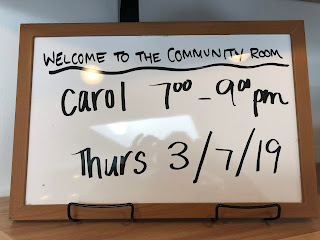 WELCOME TO THE COMMUNITY ROOM
Carol 7⁰⁰ - 9⁰⁰ pm
Thurs 3/7/19